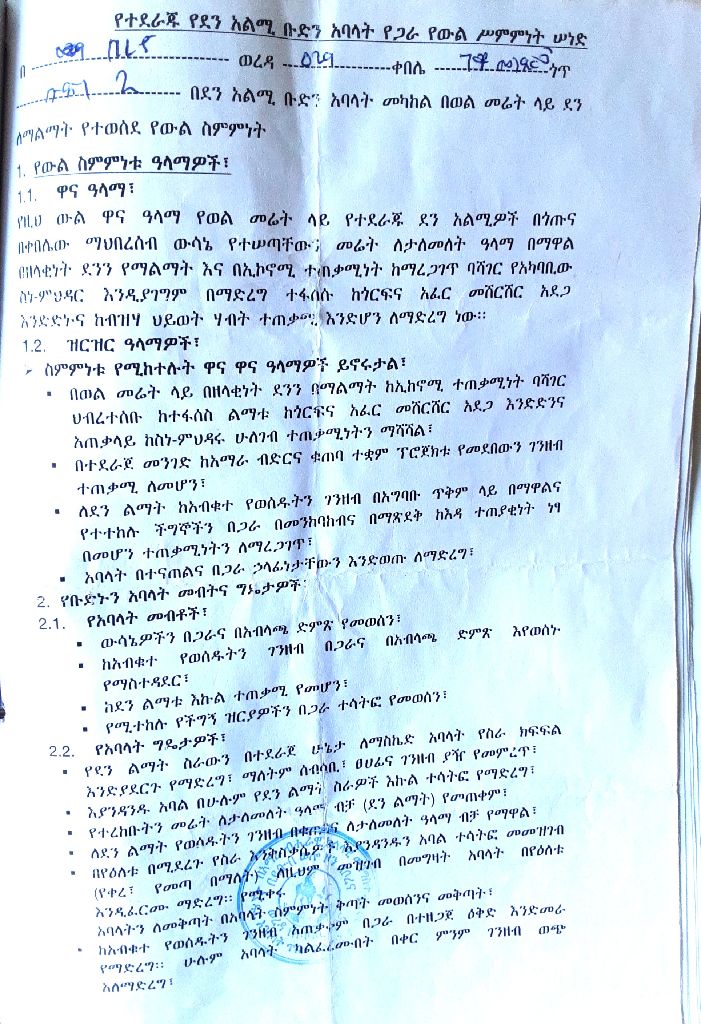 የተደራጁ የደን አልሚ ቡድን አባላት የጋራ የውል ሥምምነት ሠነድ
በ ወረዳ ቀበሌ ጎጥ
በደን አልሚ ቡድን አባላት መካከል በወል መሬት ላይ ደን
ለማልማት የተወሰደ የውል ስምምነት
1. የውል ስምምነቱ ዓላማዎች፣
1.1. ዋና ዓላማ፣
የዚህ ውል ዋና ዓላማ የወል መሬት ላይ የተደራጁ ደን አልሚዎች በጎጡና
በቀበሌው ማህበረሰብ ውሳኔ የተሠጣቸው; መሬት ለታለመለት ዓላማ በማዋል
በዘላቂነት ደንን የማልማት እና በኢኮኖሚ ተጠቃሚነት ከማረጋገጥ ባሻገር የአካባቢው
ስነ-ምህዳር እንዲያገግም በማድረግ ተፋሰሱ ከጎርፍና አፈር መሸርሸር አደጋ
እንድድኑና ከብዝሃ ህይወት ሃብት ተጠቃሚ እንድሆን ለማድረግ ነው።
1.2. ዝርዝር ዓላማዎች፣
➢ ስምምነቱ የሚከተሉት ዋና ዋና ዓላማዎች ይኖሩታል፣
▪ በወል መሬት ላይ በዘላቂነት ደንን በማልማት ከኢከኖሚ ተጠቃሚነት ባሻገር
ህብረተሰቡ ከተፋሰስ ልማቱ ከጎርፍና አፈር መሸርሸር አደጋ እንድድንና
አጠቃላይ ከስነ-ምህዳሩ ሁለገብ ተጠቃሚነትን ማሻሻል፣
▪ በተደራጀ መንገድ ከአማራ ብድርና ቁጠባ ተቋም ፕሮጀክቱ የመደበውን ገንዘብ
ተጠቃሚ ለመሆን፣
▪ ለደን ልማት ከአብቁተ የወሰዱትን ገንዘብ በአግባቡ ጥቅም ላይ በማዋልና
የተተከሉ ችግኞችን በጋራ በመንከባከብና በማጽደቅ ከእዳ ተጠያቂነት ነፃ
በመሆን ተጠቃሚነትን ለማረጋገጥ፣
▪ አባላት በተናጠልና በጋራ ኃላፊነታቸውን እንድወጡ ለማድረግ፣
2. የቡድኑን አባላት መብትና ግዴታዎች፡
2.1. የአባላት መብቶች፣
▪ ውሳኔዎችን በጋራና በአብላጫ ድምጽ የመወሰን፣
▪ ከአብቁተ የወሰዱትን ገንዘብ በጋራና በአብላጫ ድምጽ እየወሰኑ
የማስተዳደር፣
▪ ከደን ልማቱ እኩል ተጠቃሚ የመሆን፣
▪ የሚተከሉ የችግኝ ዝርያዎችን በጋራ ተሳትፎ የመወሰን፣
2.2. የአባላት ግዴታዎች፣
▪ የደን ልማት ስራውን በተደራጀ ሁኔታ ለማስኬድ አባላት የስራ ክፍፍል
እንዲያደርጉ የማድረግ፣ ማለትም ሰብሳቢ፣ ፀሀፊና ገንዘብ ያዥ የመምረጥ፣
▪ እያንዳንዱ አባል በሁሉም የደን ልማት ስራዎች እኩል ተሳትፎ የማድረግ፣
▪ የተረከቡትን መሬት ለታለመለት ዓላማ ብቻ (ደን ልማት) የመጠቀም፣
▪ ለደን ልማት የወሰዱትን ገንዘብ በቁጠባና ለታለመለት ዓላማ ብቻ የማዋል፣
▪ በየዕለቱ በሚደረጉ የስራ እንቅስቃሴዎች እያንዳንዱን አባል ተሳትፎ መመዝገብ
(የቀረ፣ የመጣ በማለት) ለዚህም መዝገብ በመግዛት አባላት በየዕለቱ
እንዲፈርሙ ማድረግ። የሚቀሩ
አባላትን ለመቅጣት በአባላት ስምምነት ቅጣት መወሰንና መቅጣት፣
▪ ከአብቁተ የወሰዱትን ገንዘብ አጠቃቀም በጋራ በተዘጋጀ ዕቅድ እንድመራ
የማድረግ። ሁሉም አባላት ካልፈረሙበት በቀር ምንም ገንዘብ ወጭ
አለማድረግ፣